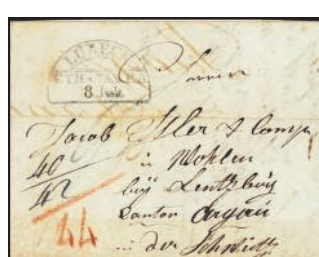 LÜBECK
8 Jul.
Herren
Jacob Isler & Comp
40
42
in Wohlen
bey Lentzburg
Canton Argau
44
in der Schweitz